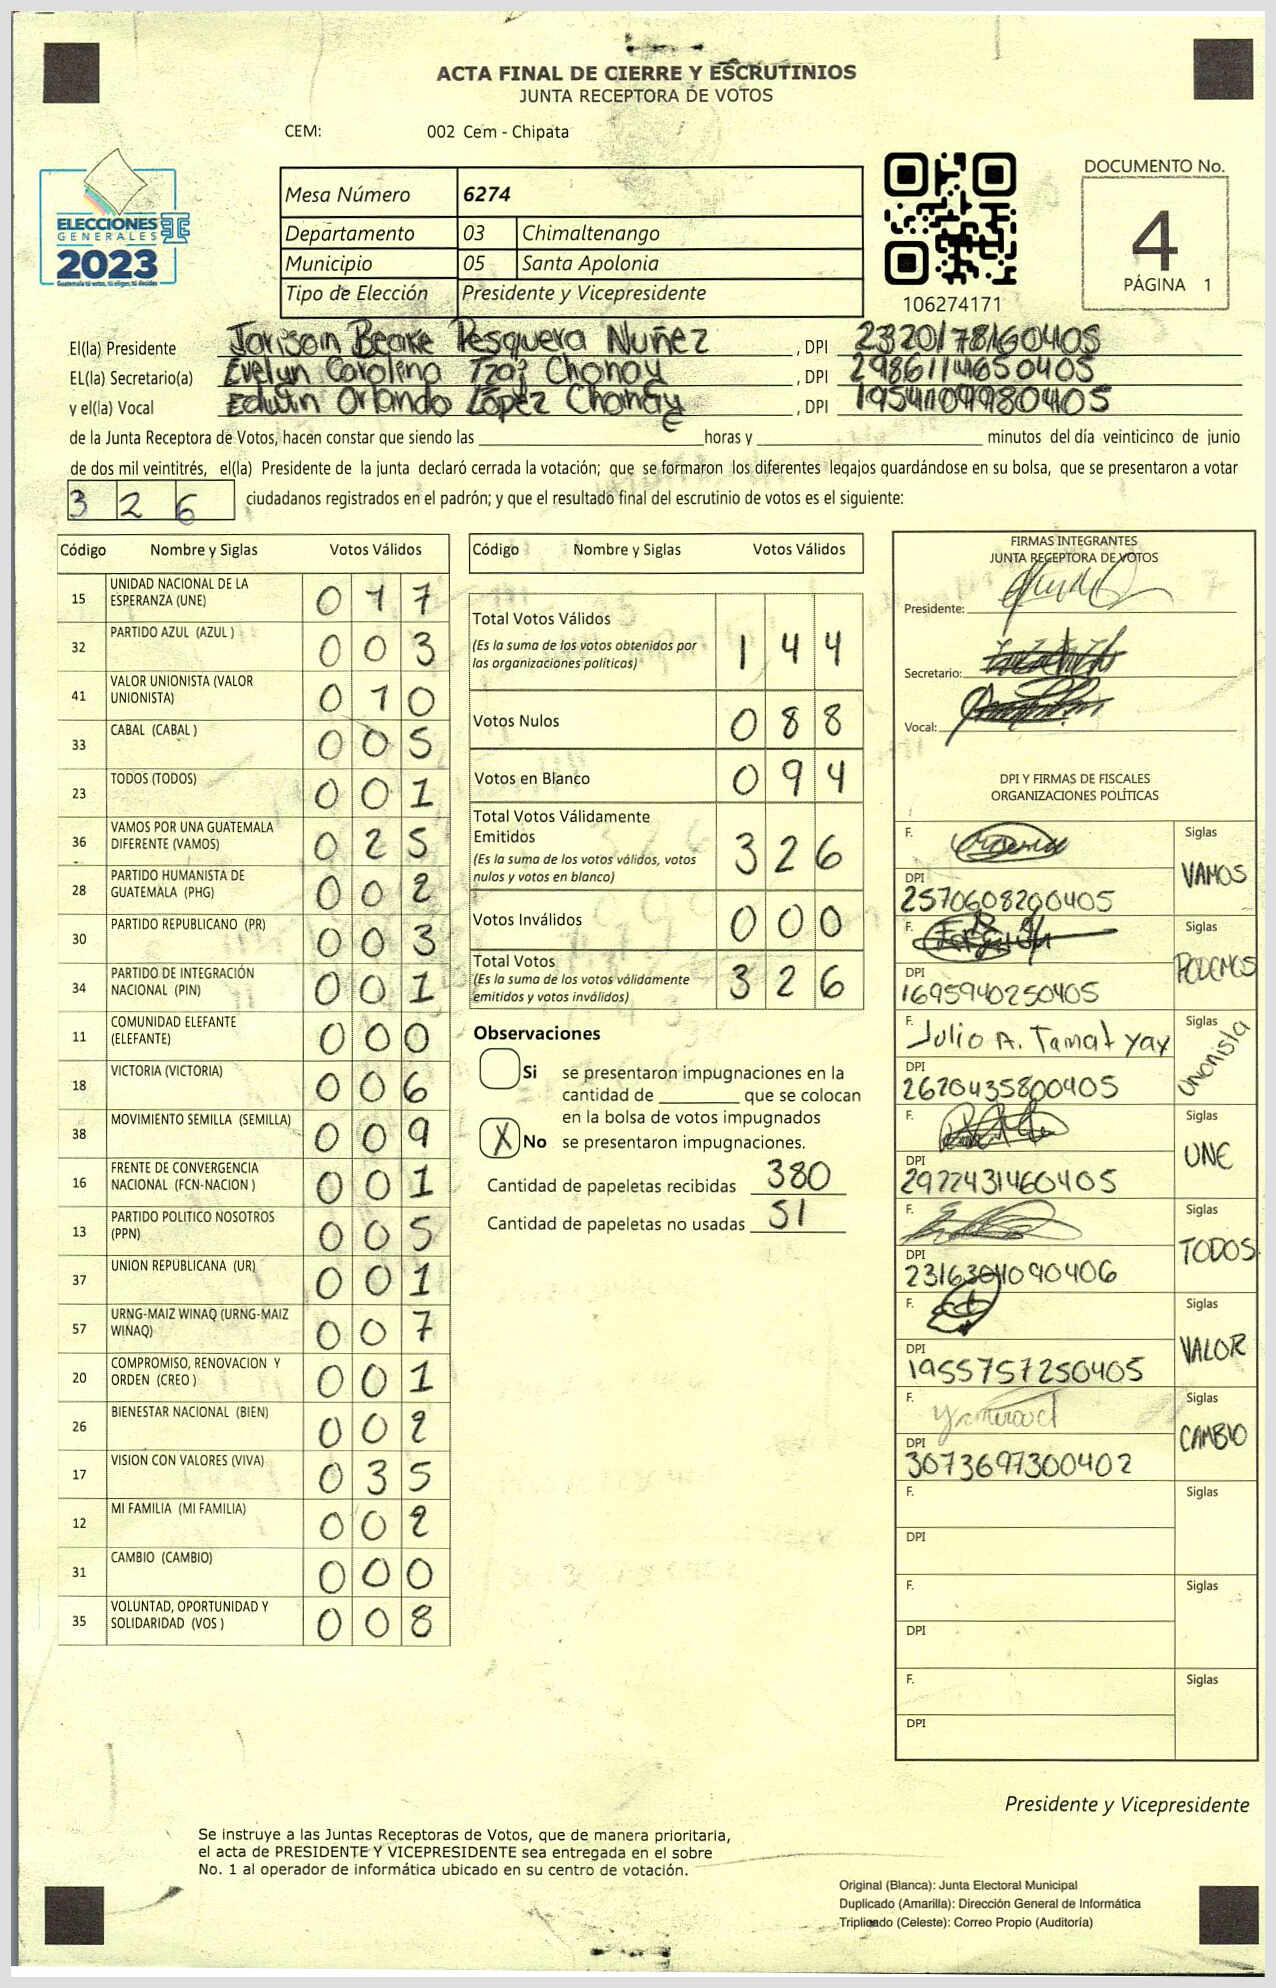 ACTA FINAL DE CIERRE Y ESCRUTINIOS
JUNTA RECEPTORA DE VOTOS
CEM: 002 Cem - Chipata
ELECCIONES
GENERALES
2023
Guatemala tú votas, tú eliges, tú decides
Mesa Número 6274
Departamento 03 Chimaltenango
Municipio 05 Santa Apolonia
Tipo de Elección Presidente y Vicepresidente
106274171
DOCUMENTO No.
4
PÁGINA 1
El(la) Presidente Pesquera Nuñez , DPI 2320178160405
EL(la) Secretario(a) Evelyn Carolina Chonay , DPI 2986114650405
y el(la) Vocal Edwin Orlando López Chonay , DPI
de la Junta Receptora de Votos, hacen constar que siendo las horas y minutos del día veinticinco de junio
de dos mil veintitrés, el(la) Presidente de la junta declaró cerrada la votación; que se formaron los diferentes legajos guardándose en su bolsa, que se presentaron a votar
3 2 6 ciudadanos registrados en el padrón; y que el resultado final del escrutinio de votos es el siguiente:
Código Nombre y Siglas Votos Válidos
15 UNIDAD NACIONAL DE LA ESPERANZA (UNE) 0 1 7
32 PARTIDO AZUL (AZUL ) 0 0 3
41 VALOR UNIONISTA (VALOR UNIONISTA) 0 1 0
33 CABAL (CABAL ) 0 0 5
23 TODOS (TODOS) 0 0 1
36 VAMOS POR UNA GUATEMALA DIFERENTE (VAMOS) 0 2 5
28 PARTIDO HUMANISTA DE GUATEMALA (PHG) 0 0 2
30 PARTIDO REPUBLICANO (PR) 0 0 3
34 PARTIDO DE INTEGRACIÓN NACIONAL (PIN) 0 0 1
11 COMUNIDAD ELEFANTE (ELEFANTE) 0 0 0
18 VICTORIA (VICTORIA) 0 0 6
38 MOVIMIENTO SEMILLA (SEMILLA) 0 0 9
16 FRENTE DE CONVERGENCIA NACIONAL (FCN-NACION ) 0 0 1
13 PARTIDO POLITICO NOSOTROS (PPN) 0 0 5
37 UNION REPUBLICANA (UR) 0 0 1
57 URNG-MAIZ WINAQ (URNG-MAIZ WINAQ) 0 0 7
20 COMPROMISO, RENOVACION Y ORDEN (CREO ) 0 0 1
26 BIENESTAR NACIONAL (BIEN) 0 0 2
17 VISION CON VALORES (VIVA) 0 3 5
12 MI FAMILIA (MI FAMILIA) 0 0 2
31 CAMBIO (CAMBIO) 0 0 0
35 VOLUNTAD, OPORTUNIDAD Y SOLIDARIDAD (VOS ) 0 0 8
Código Nombre y Siglas Votos Válidos
Total Votos Válidos 1 4 4
(Es la suma de los votos obtenidos por
las organizaciones políticas)
Votos Nulos 0 8 8
Votos en Blanco 0 9 4
Total Votos Válidamente
Emitidos 3 2 6
(Es la suma de los votos válidos, votos
nulos y votos en blanco)
Votos Inválidos 0 0 0
Total Votos 3 2 6
(Es la suma de los votos válidamente
emitidos y votos inválidos)
Observaciones
Si se presentaron impugnaciones en la
cantidad de que se colocan
en la bolsa de votos impugnados
X No se presentaron impugnaciones.
Cantidad de papeletas recibidas 380
Cantidad de papeletas no usadas 51
FIRMAS INTEGRANTES
JUNTA RECEPTORA DE VOTOS
Presidente:
Secretario:
Vocal:
DPI Y FIRMAS DE FISCALES
ORGANIZACIONES POLÍTICAS
F. Siglas
VAMOS
DPI
2570608200405
F. Siglas
PODEMOS
DPI
1695940250405
F. Julio A. Tamat yax Siglas
Unionista
DPI
2620435800405
F. Siglas
UNE
DPI
2922431460405
F. Siglas
TODOS
DPI
F. Siglas
VALOR
DPI
1955757250405
F. Siglas
CAMBIO
DPI
3073697300402
F. Siglas
DPI
F. Siglas
DPI
F. Siglas
DPI
Presidente y Vicepresidente
Se instruye a las Juntas Receptoras de Votos, que de manera prioritaria,
el acta de PRESIDENTE Y VICEPRESIDENTE sea entregada en el sobre
No. 1 al operador de informática ubicado en su centro de votación.
Original (Blanca): Junta Electoral Municipal
Duplicado (Amarilla): Dirección General de Informática
Triplicado (Celeste): Correo Propio (Auditoría)